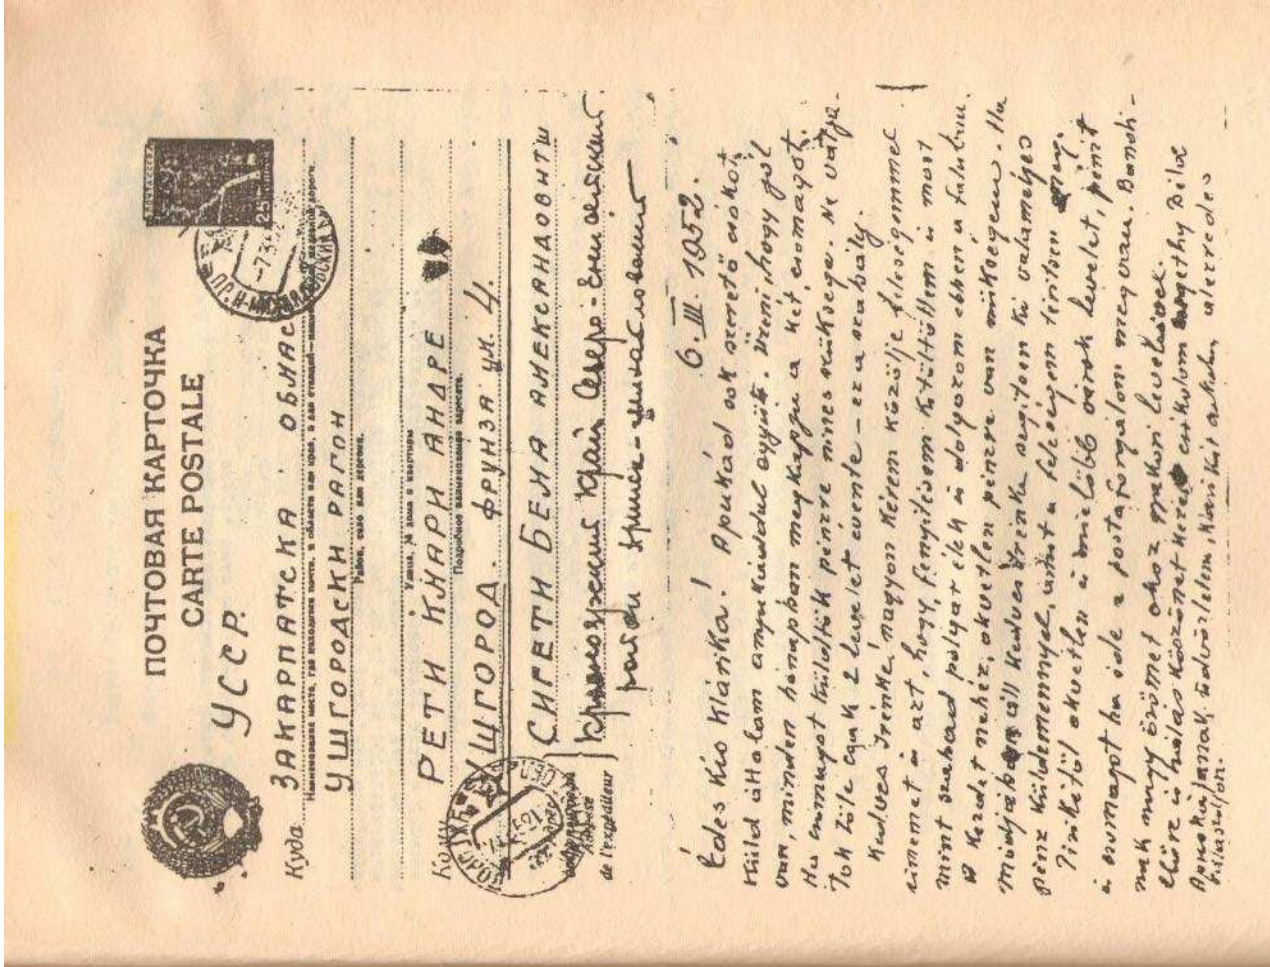 ПОЧТОВАЯ КАРТОЧКА
CARTE POSTALE
УССР.
Куда ЗАКАРПАТСКА ОБЛАС
УШГОРОДСКИ РАГОН
Район, село или деревня.
Улица, № дома и квартиры
РЕТИ КЛАРИ АНДРЕ
Подробное наименование адресата.
УЩГОРОД. ФРУНЗА ул. 4.
СИГЕТИ БЕЛА АЛЕКСАНДОВИТШ
de l'expéditeur
Край Северо-Енисейский
район
6. III. 1952.
Édes Kis Klárika! Apukád sok szerető csókot
küld általam anyukáddal együtt. Üzeni, hogy jól
van, minden hónapban megkapja a két csomagot.
Ha csomagot küldtök pénzre nincs szüksége. Ne várja-
tok tőle csak 2 levelet évente – ez a szabály.
Kedves Irénke, nagyon kérem közölje feleségemmel
címemet és azt, hogy fenyítésem kitöltöttem és most
mint szabad polgár élek és dolgozom ebben a faluban.
A kezdet nehéz, okvetlen pénzre van szükségem. Ha
módjában áll kedves Irénke segítsen ki valamelyes
pénz küldeménnyel, amit a feleségem térítsen meg.
Pirikétől okvetlen és mielőbb várok levelet, pénzt
és csomagot ha ide a postaforgalom megvan. Bandi-
nak nagy örömet okoz makói levelük.
Előre is hálás köszönet
Apnokájának üdvözletem, Klárikát